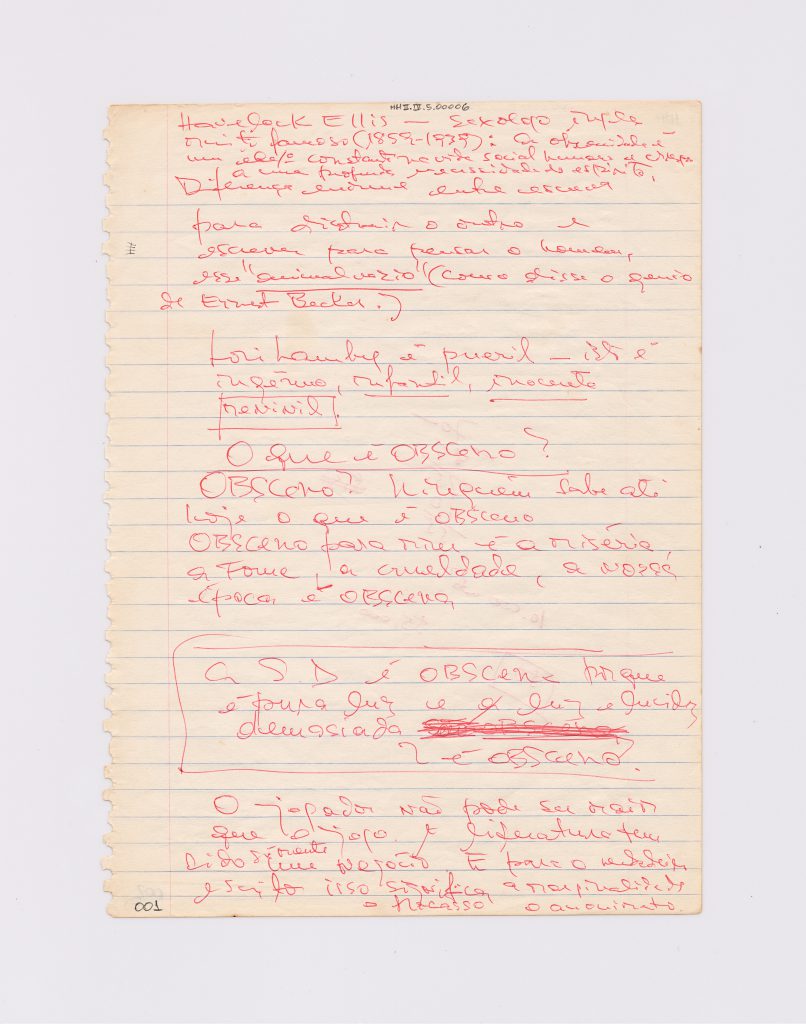 HH II.IV.5.00006
Havelock Ellis — Sexólogo inglês
muito famoso (1859-1939): A obscenidade é
um constante na vida social humana e
a uma profunda necessidade do espírito.
Diferença enorme entre escrever
para distrair o outro e
escrever para pensar o homem,
esse "animal vazio" (como disse o gênio
de Ernest Becker.)
Lori Lamby é pueril — isto é
ingênuo, infantil, inocente
meninil.
O que é OBSceno?
OBSceno? Ninguém sabe até
hoje o que é OBSceno
OBSceno para mim é a miséria,
a Fome, a crueldade, a nossa
época é OBSCENA
A S. D é OBSCENA porque
é pura luz e a luz e lucidez
demasiada
é OBSCENO?
O jogador não pode ser mais
que o jogo. A literatura tem
sido somente um negócio E para o verdadeiro
escritor isso significa a marginalidade
o fracasso o anonimato.
001